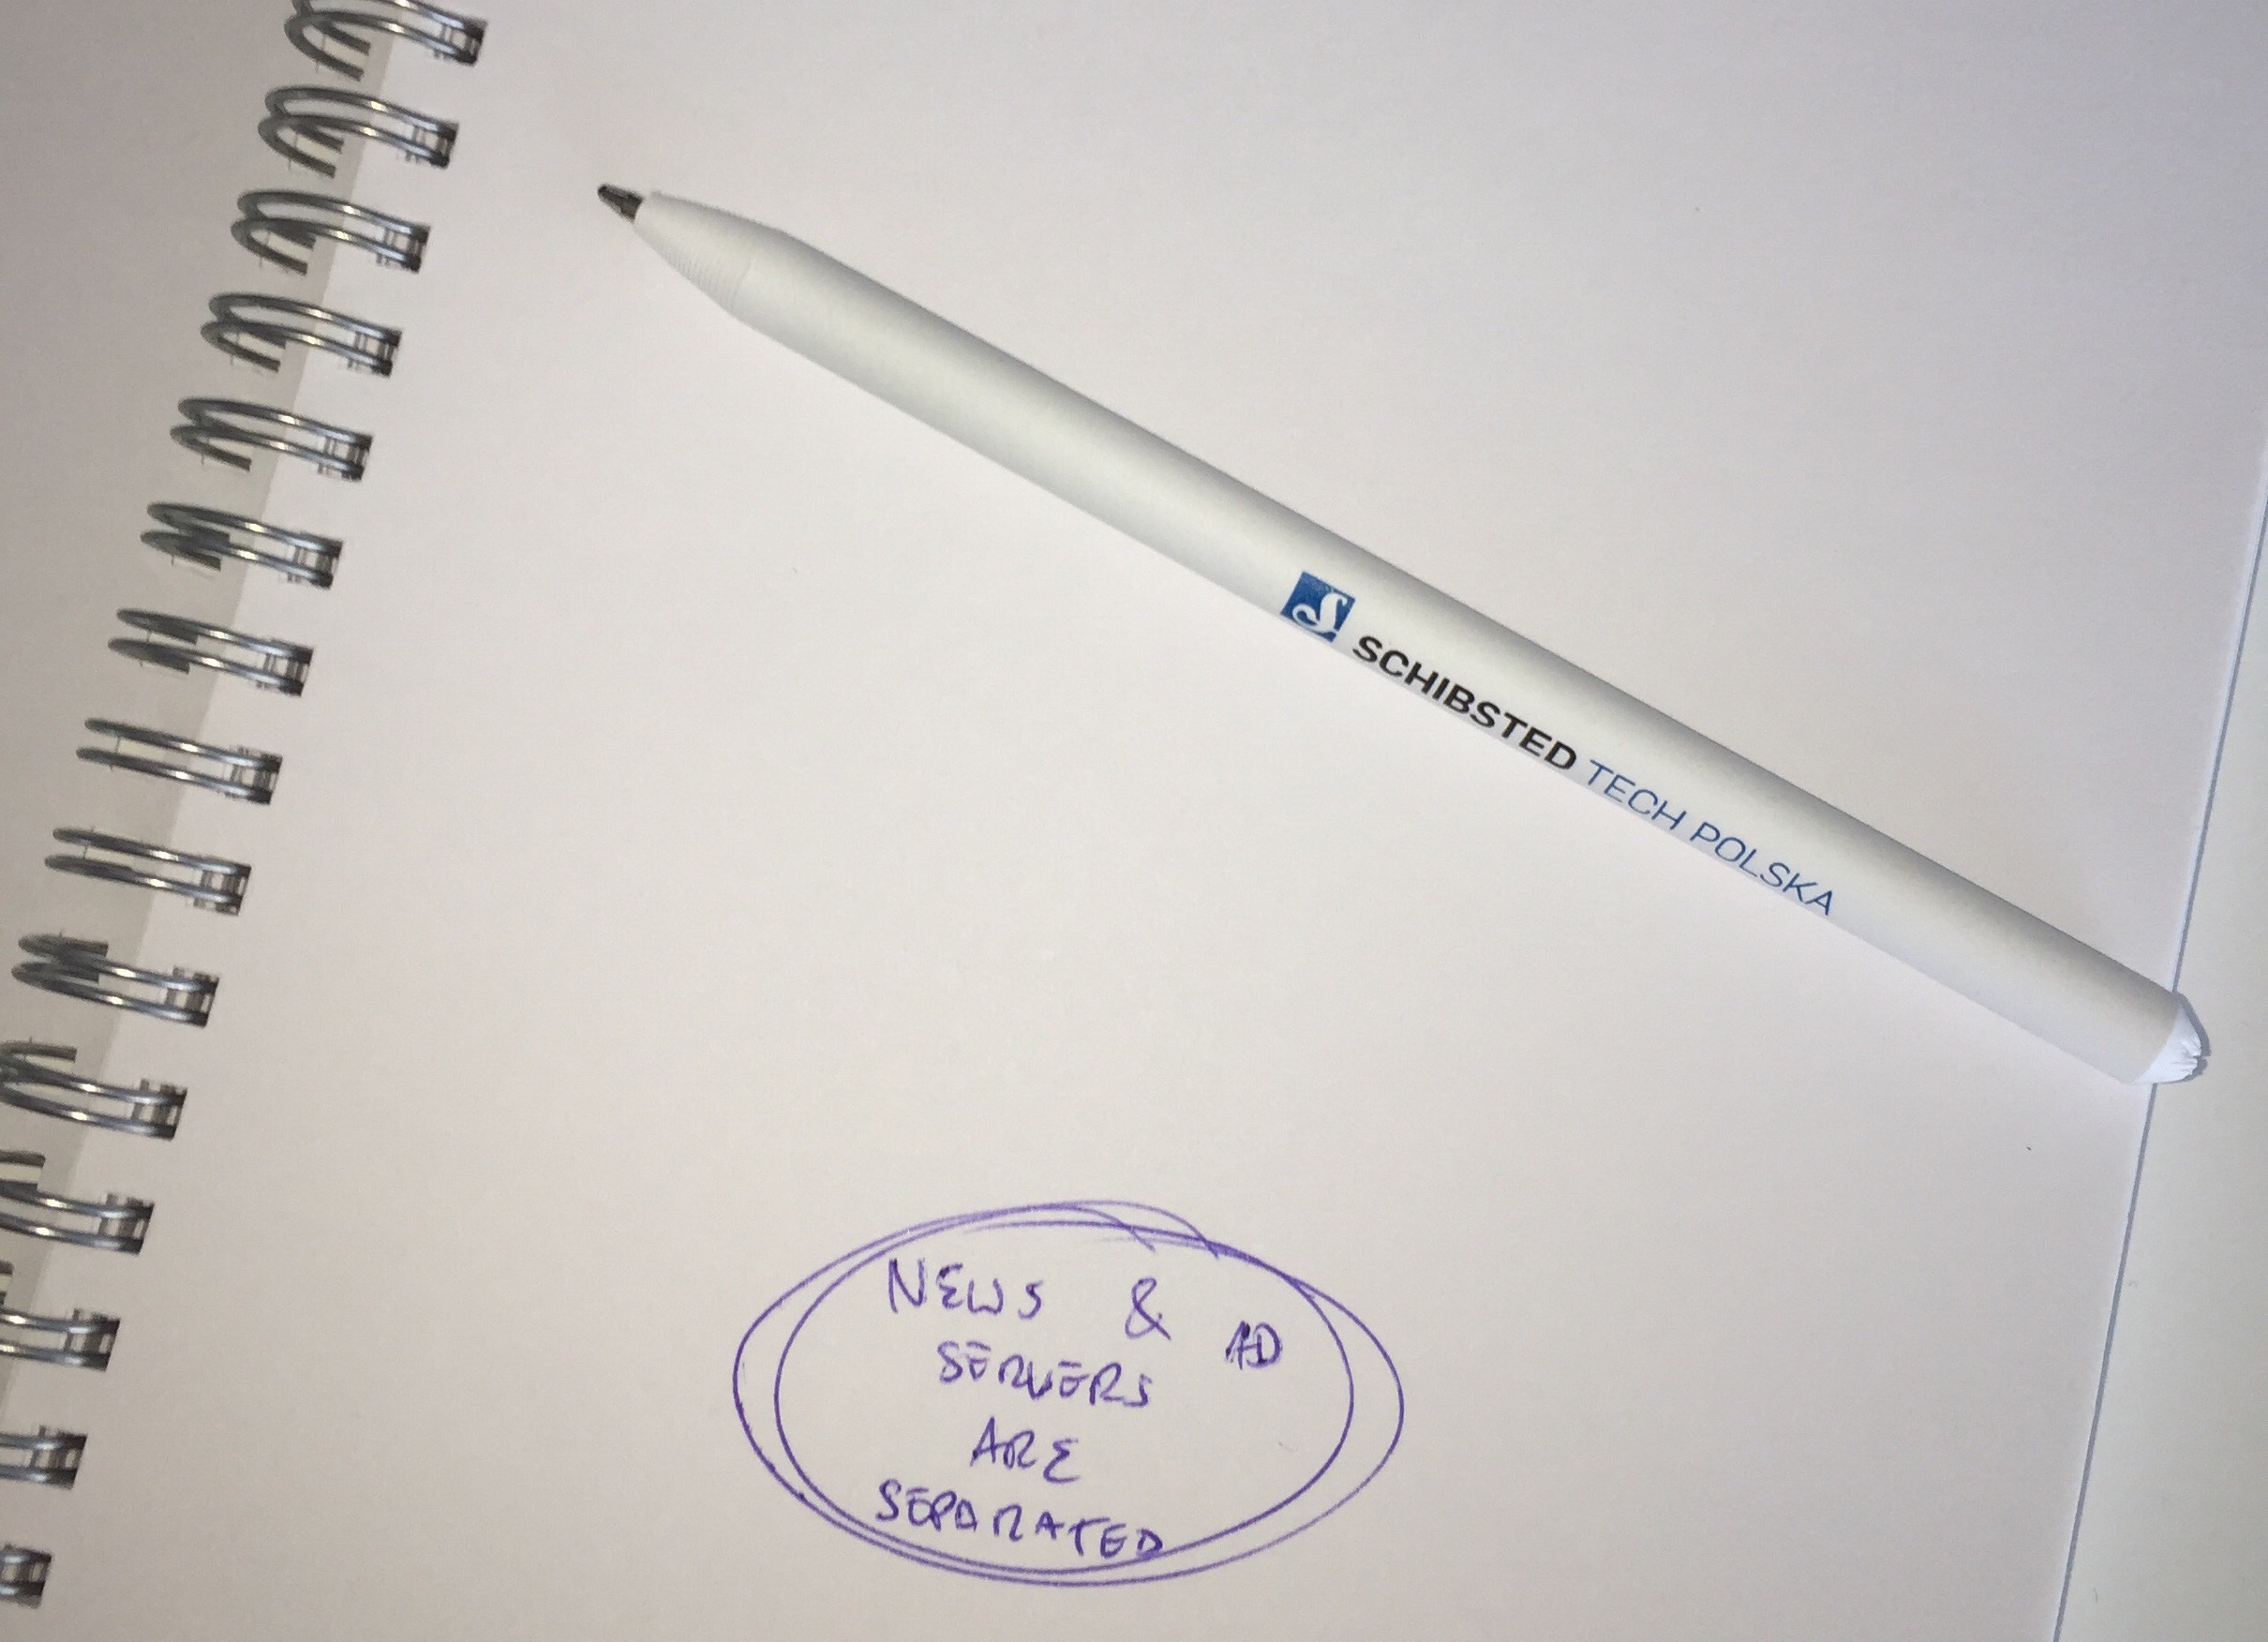 S SCHIBSTED TECH POLSKA
NEWS & AD
SERVERS
ARE
SEPARATED